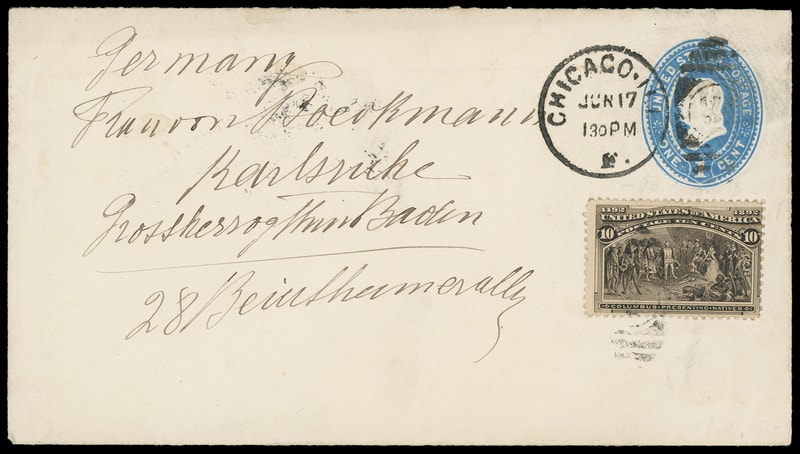 Germany
Frau von Boeckmann
Karlsruhe
Grossherzogthum Baden
28 Beiertheimerallee
CHICAGO, ILL
JUN 17
130 PM
UNITED STATES POSTAGE
ONE 1 CENT
1492 1892
UNITED STATES OF AMERICA
10 POSTAGE TEN CENTS 10
COLUMBUS PRESENTING NATIVES